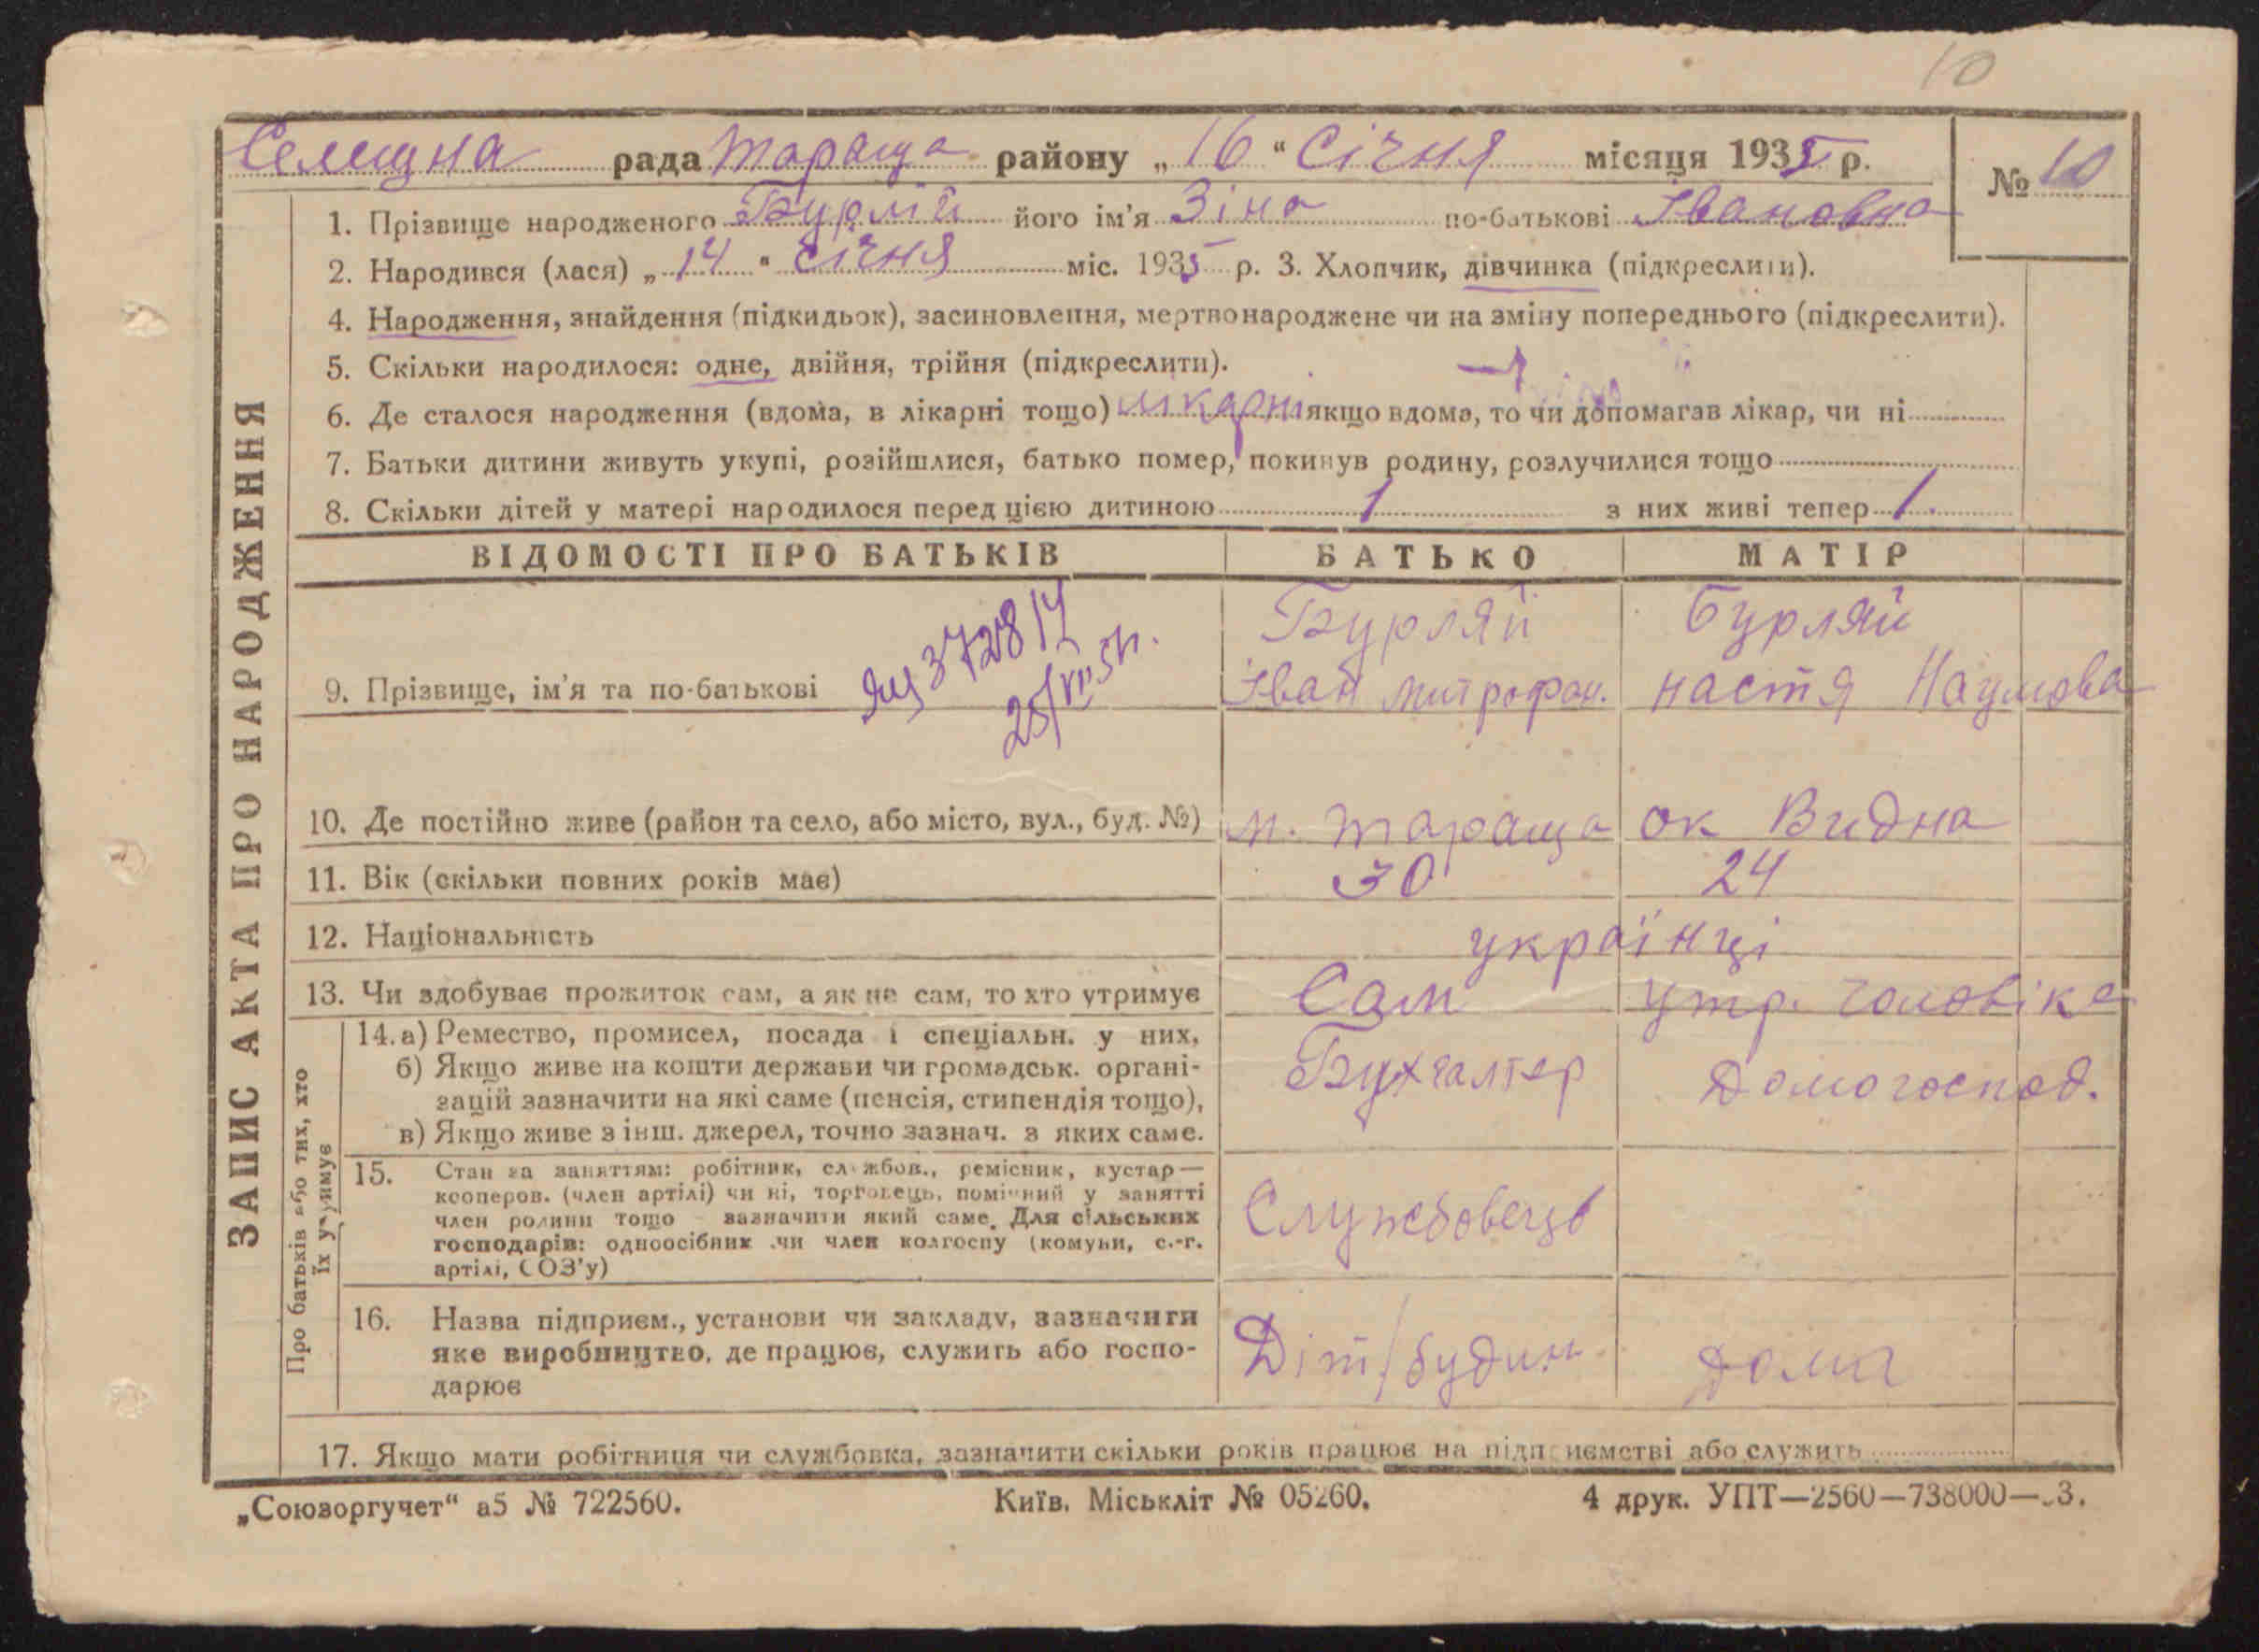 10
Селищна рада Тараща району „16" Січня місяця 1935 р. № 10
ЗАПИС АКТА ПРО НАРОДЖЕННЯ
1. Прізвище народженого його ім'я Зіна по-батькові Івановна
2. Народився (лася) „14" січня міс. 1935 р. 3. Хлопчик, дівчинка (підкреслити).
4. Народження, знайдення (підкидьок), засиновлення, мертвонароджене чи на зміну попереднього (підкреслити).
5. Скільки народилося: одне, двійня, трійня (підкреслити).
6. Де сталося народження (вдома, в лікарні тощо) лікарні якщо вдома, то чи допомагав лікар, чи ні
7. Батьки дитини живуть укупі, розійшлися, батько помер, покинув родину, розлучилися тощо
8. Скільки дітей у матері народилося перед цією дитиною 1 з них живі тепер 1.
ВІДОМОСТІ ПРО БАТЬКІВ БАТЬКО МАТІР
Бурляй Бурляй
9. Прізвище, ім'я та по-батькові Іван Митрофан. Настя Наумова
372814
10. Де постійно живе (район та село, або місто, вул., буд. №) м. Тараща ок Видна
11. Вік (скільки повних років має) 30 24
12. Національність українці
13. Чи здобуває прожиток сам, а як не сам, то хто утримує Сам утр. чоловіка
Про батьків або тих, хто їх утримує
14. а) Ремество, промисел, посада і спеціальн. у них, Бухгалтер Домогоспод.
б) Якщо живе на кошти держави чи громадськ. органі-
зацій зазначити на які саме (пенсія, стипендія тощо),
в) Якщо живе з інш. джерел, точно зазнач. з яких саме.
15. Стан за заняттям: робітник, службов., ремісник, кустар—
кооперов. (член артілі) чи ні, торговець, помічний у занятті
член родини тощо - зазначити який саме. Для сільських
господарів: одноосібник чи член колгоспу (комуни, с.-г.
артілі, СОЗ'у)
Службовець
16. Назва підприєм., установи чи закладу, зазначити
яке виробництво, де працює, служить або госпо-
дарює
Діт/будин Дома
17. Якщо мати робітниця чи службовка, зазначити скільки років працює на підприємстві або служить
„Союзоргучет" а5 № 722560. Київ. Міськліт № 05260. 4 друк. УПТ—2560—738000—